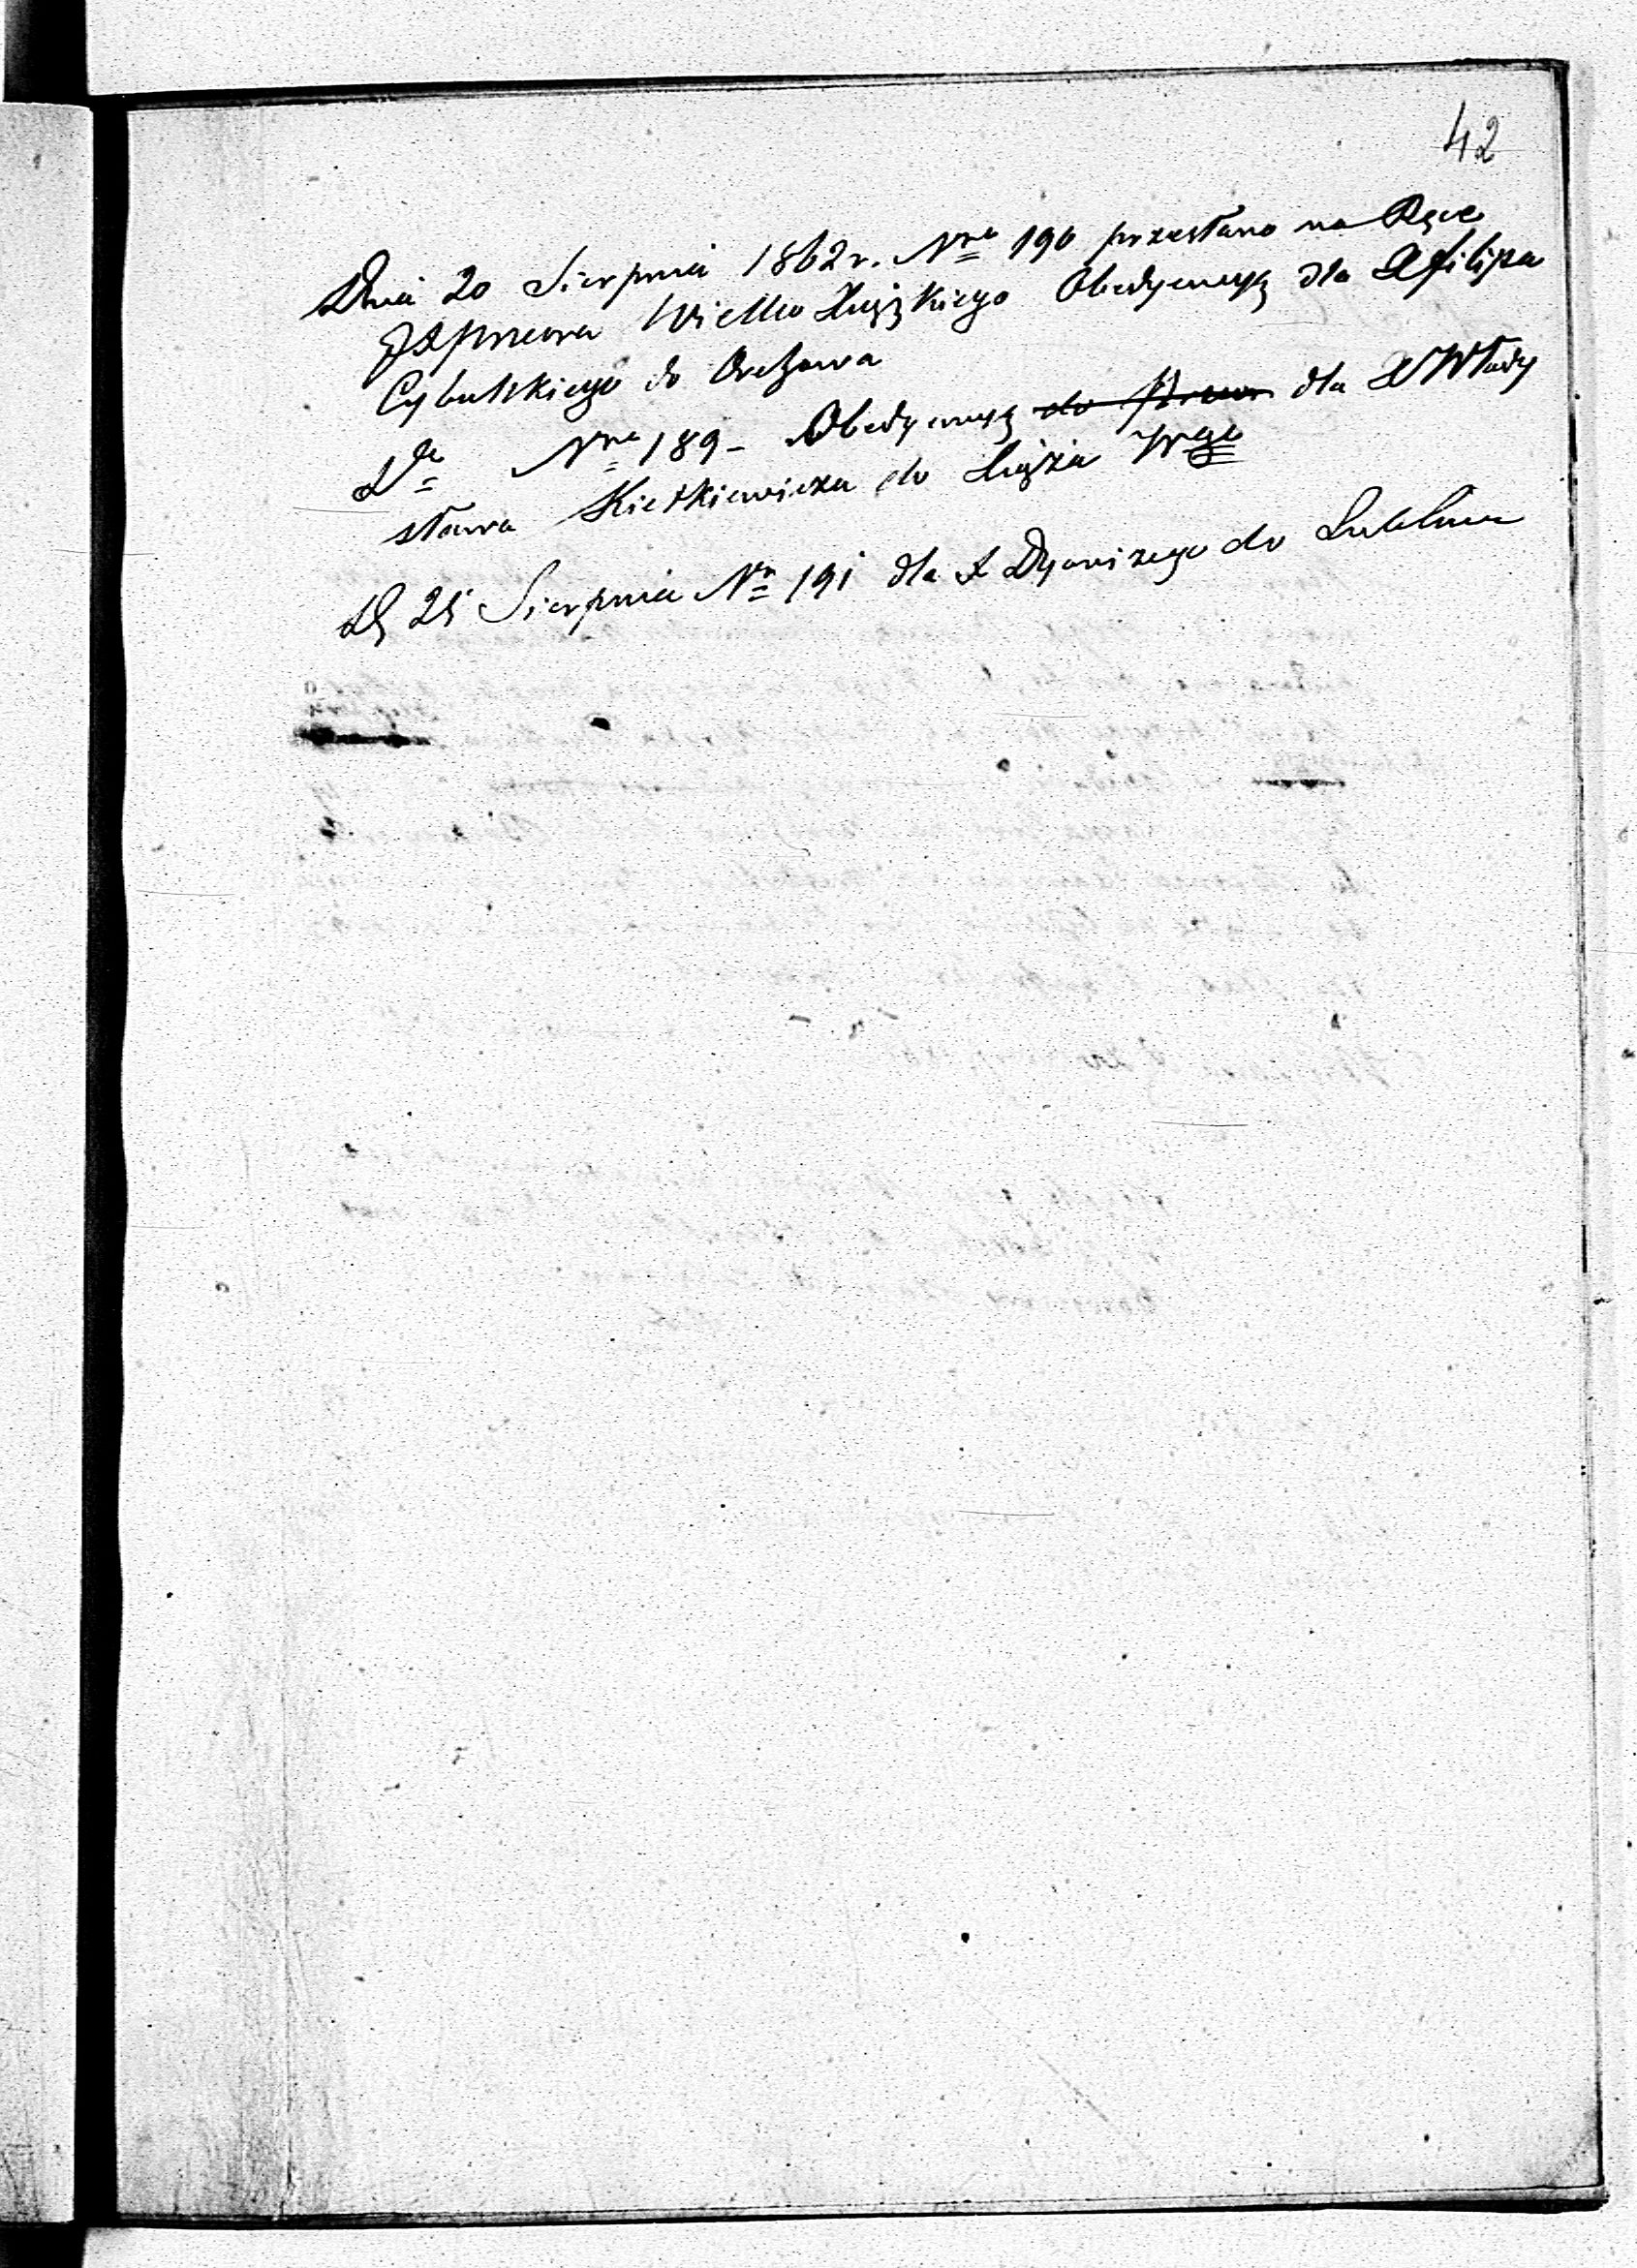 42
Dnia 20 Sierpnia 1862 r. Nro 190 przesłano na Ręce
Wielko Łużskiego Obedyencyą dla X Filipa
Cybulskiego do Orchowa
Do Nro 189 - Obedyencyą do dla X Włady
sława Kietkiewicza do Łużka Wgo
D 25 Sierpnia Nro 191 dla X Dyonizego do Lublina